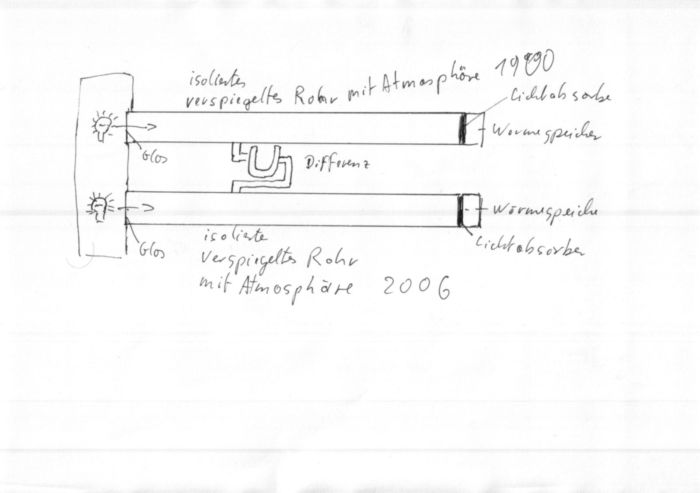 isoliertes
verspiegeltes Rohr mit Atmosphäre 1900
Lichtabsorbe
Wärmespeicher
Glas
Differenz
Wärmespeiche
Lichtabsorber
Glas
isolierte
verspiegeltes Rohr
mit Atmosphäre 2006